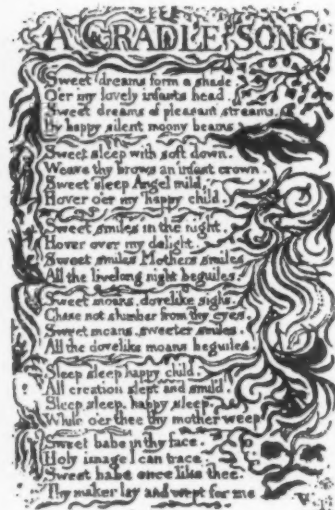 A CRADLE SONG
Sweet dreams form a shade
Oer my lovely infants head.
Sweet dreams of pleasant streams,
By happy silent moony beams
Sweet sleep with soft down.
Weave thy brows an infant crown.
Sweet sleep Angel mild,
Hover oer my happy child.
Sweet smiles in the night.
Hover over my delight.
Sweet smiles Mothers smiles
All the livelong night beguiles.
Sweet moans, dovelike sighs.
Chase not slumber from thy eyes.
Sweet moans, sweeter smiles.
All the dovelike moans beguiles.
Sleep sleep happy child.
All creation slept and smil'd.
Sleep sleep, happy sleep,
While oer thee thy mother weep
Sweet babe in thy face.
Holy image I can trace.
Sweet babe once like thee.
Thy maker lay and wept for me